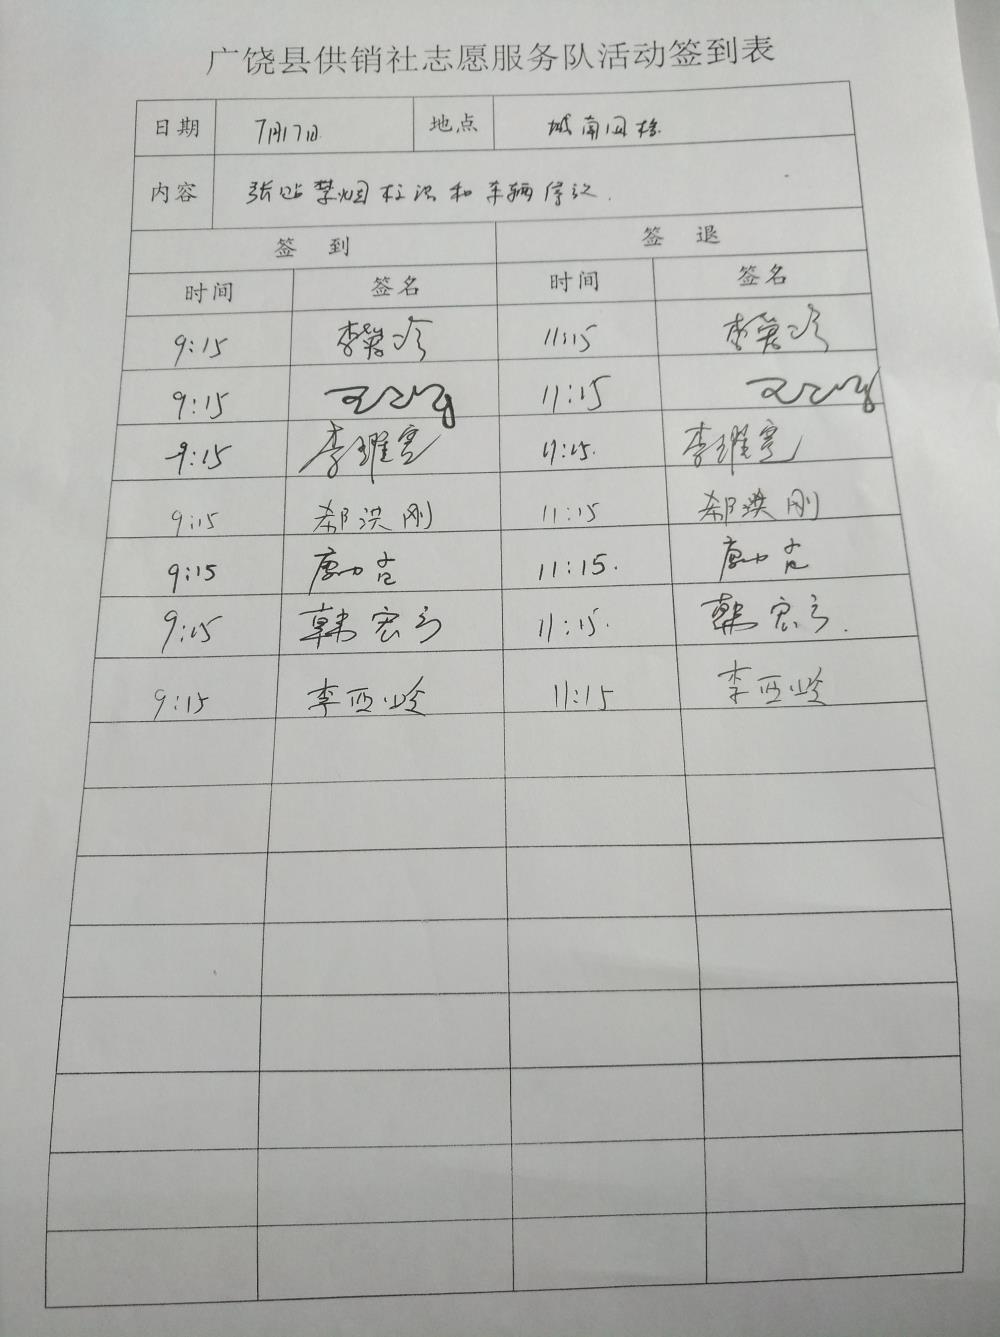 广饶县供销社志愿服务队活动签到表
日期 7月17日 地点 城南
内容 张贴禁烟标识和车辆停
签 到 签 退
时间 签名 时间 签名
9:15 李 11:15 李
9:15 11:15
9:15 李耀亮 11:15. 李耀亮
9:15 郝洪刚 11:15 郝洪刚
9:15 11:15.
9:15 韩宏 11:15. 韩宏
9:15 李亚岭 11:15 李亚岭